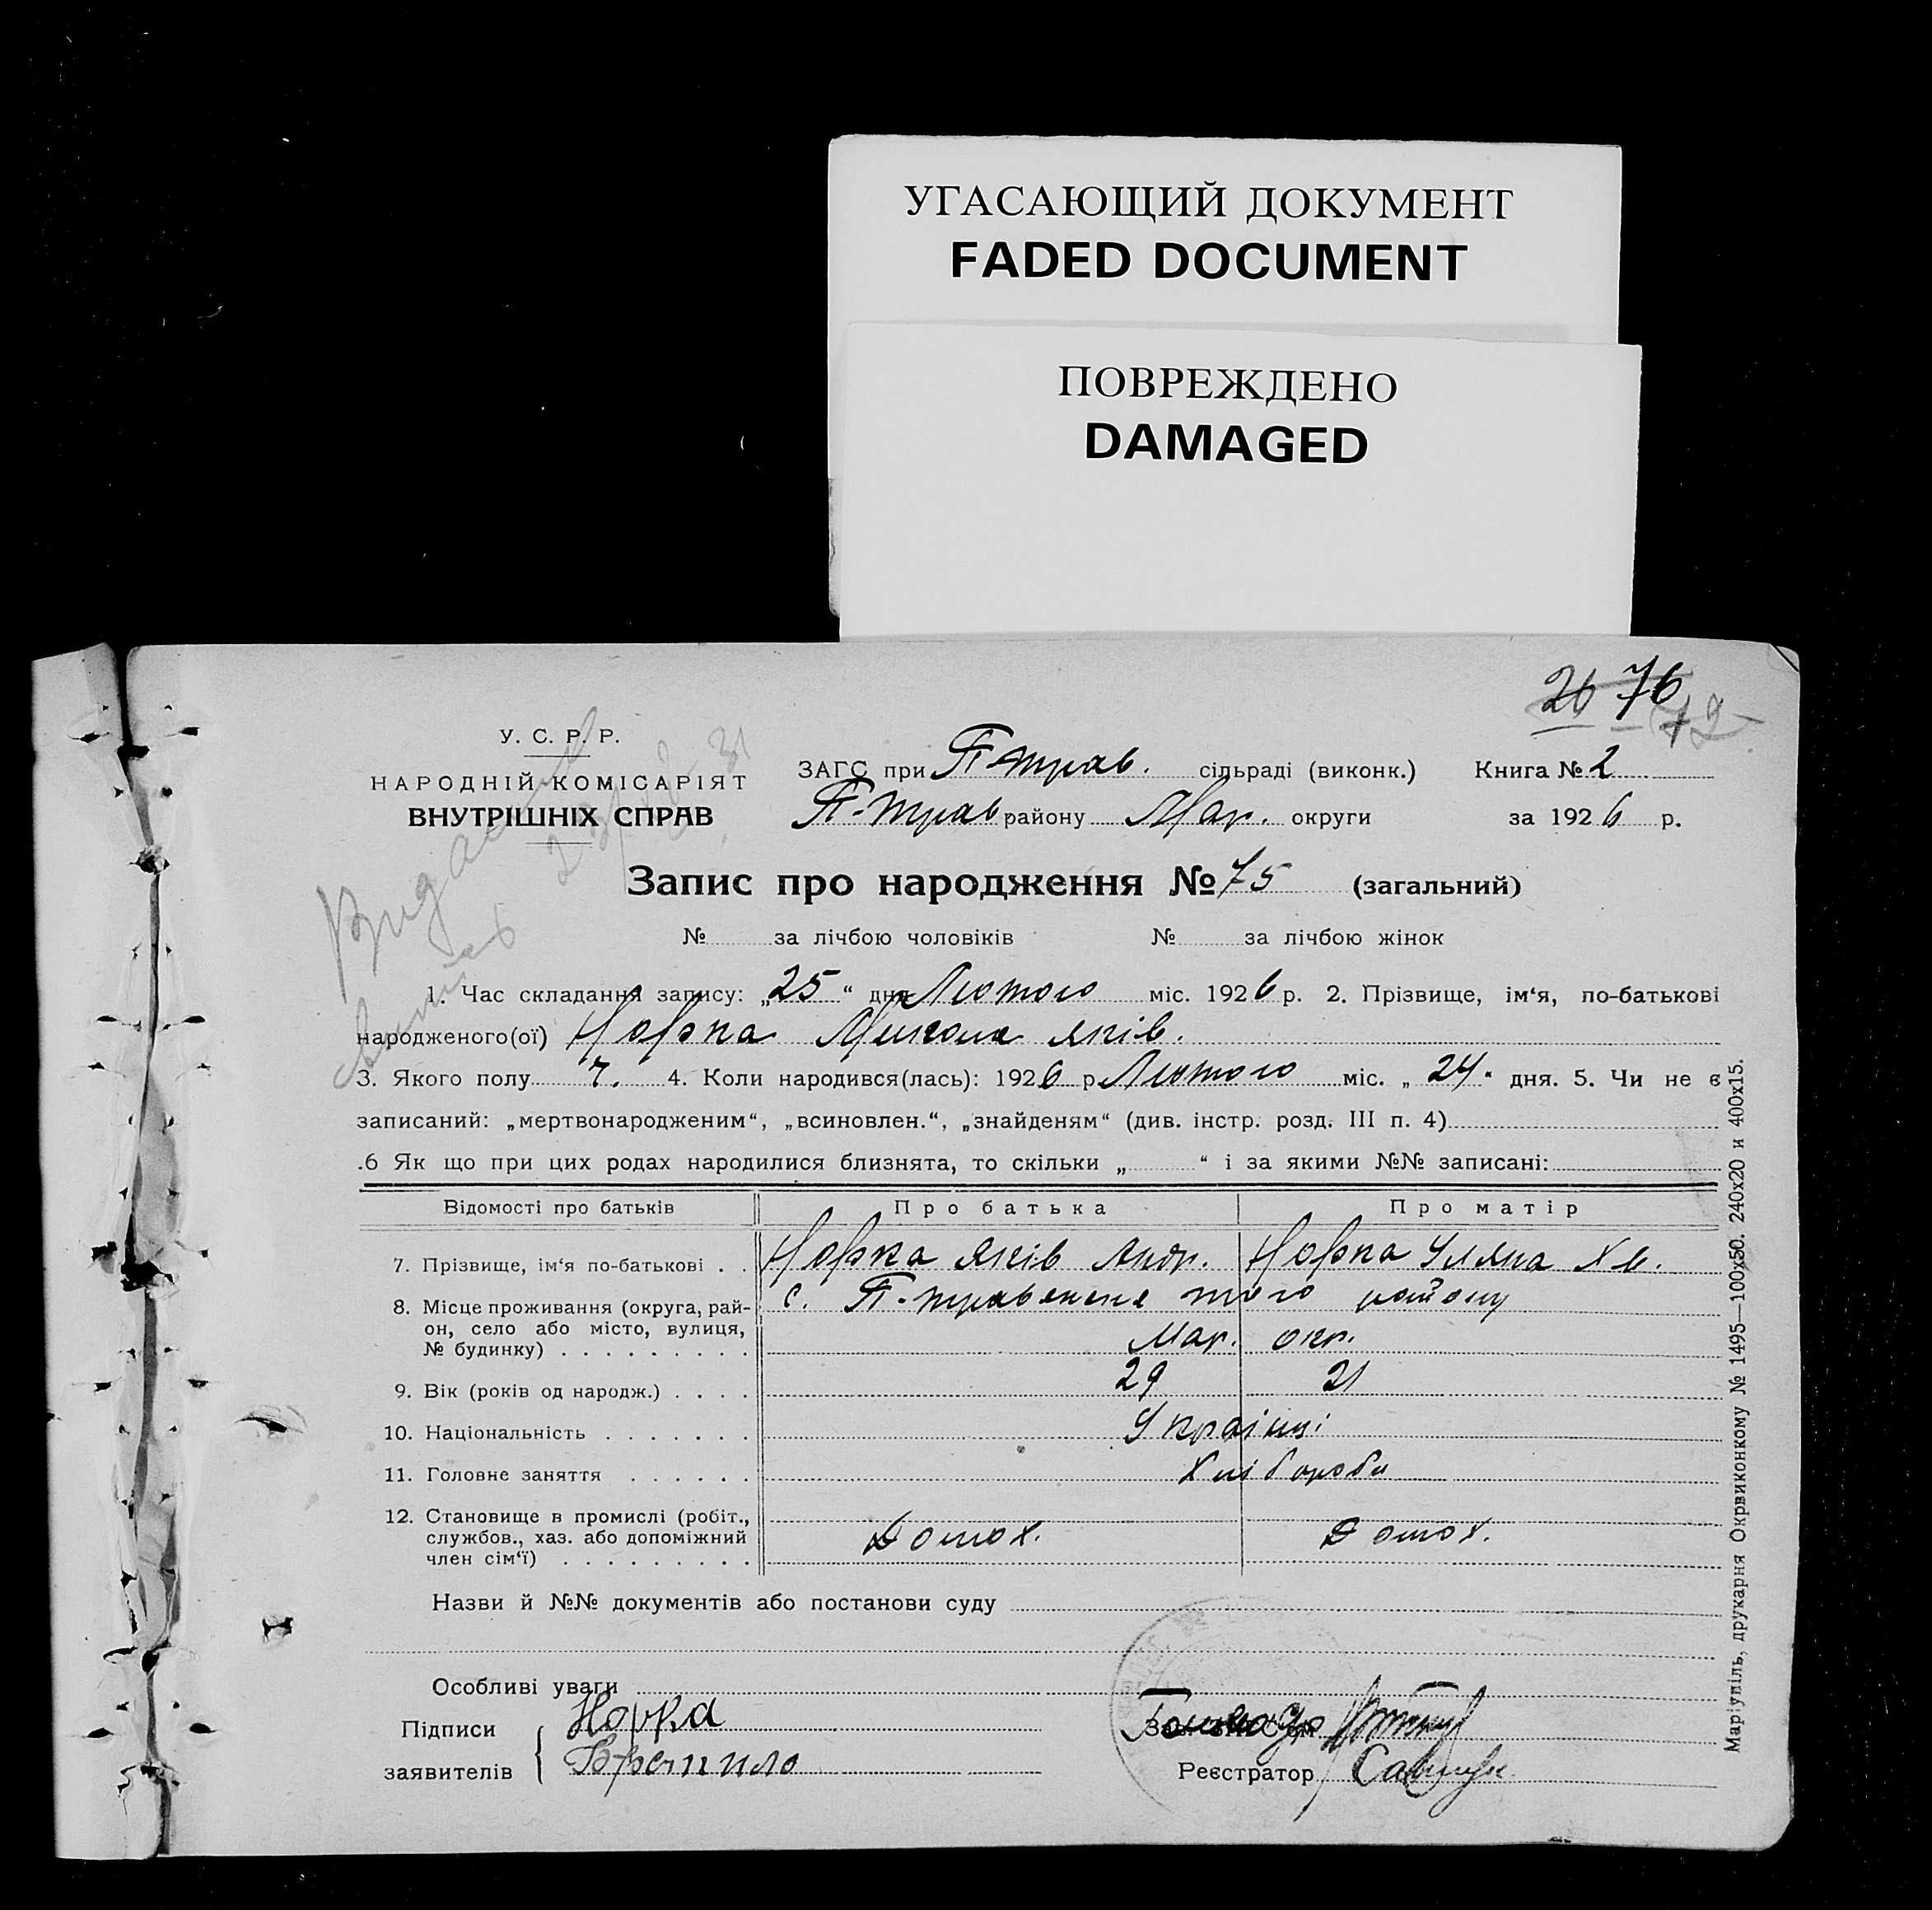 УГАСАЮЩИЙ ДОКУМЕНТ
FADED DOCUMENT
ПОВРЕЖДЕНО
DAMAGED
26 76
72
У. С. Р. Р.
НАРОДНІЙ КОМІСАРІЯТ
ВНУТРІШНІХ СПРАВ
ЗАГС при П-трав. сільраді (виконк.) Книга № 2
П-трав району Мар. округи за 1926 р.
Запис про народження № 75 (загальний)
№ за лічбою чоловіків № за лічбою жінок
1. Час складання запису: „25“ дня Лютого міс. 1926 р. 2. Прізвище, ім‘я, по-батькові
народженого(ої) Норка Микола Яків.
3. Якого полу ч. 4. Коли народився(лась): 1926 р Лютого міс. „24“ дня. 5. Чи не є
записаний: „мертвонародженим“, „всиновлен.“, „знайденям“ (див. інстр. розд. III п. 4)
.6 Як що при цих родах народилися близнята, то скільки „ “ і за якими №№ записані:
Відомості про батьків Про батька Про матір
7. Прізвище, ім‘я по-батькові . . Норка Яків Андр. Норка Уляна Хв.
8. Місце проживання (округа, рай-
он, село або місто, вулиця,
№ будинку) . . . . . . . . .
с. П-травенене того району
Мар. окр.
9. Вік (років од народж.) . . . . 29 21
10. Національність . . . . . . . Українці
11. Головне заняття . . . . . . Хлібороби
12. Становище в промислі (робіт.,
службов., хаз. або допоміжний
член сім‘ї) . . . . . . . . .
Домох. Домох.
Назви й №№ документів або постанови суду
Особливі уваги
Підписи
заявителів
Норка
Зав.
Реєстратор
Маріупіль, друкарня Окрвиконкому № 1495—100x50. 240x20 и 400x15.
Видано